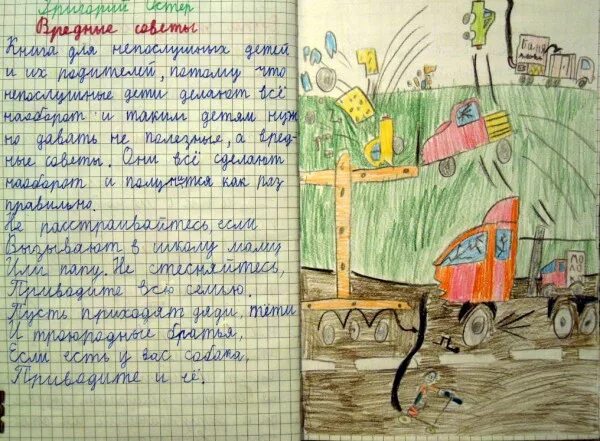 Григорий Остер
Вредные советы
Книга для непослушных детей
и их родителей, потому что
непослушные дети делают всё
наоборот и таким детям нуж
но давать не полезные, а вред-
ные советы. Они всё сделают
наоборот и получится как раз
правильно.
Не расстраивайтесь, если
Вызывают в школу маму
Или папу. Не стесняйтесь,
Приводите всю семью.
Пусть приходят дяди, тёти
И троюродные братья,
Если есть у вас собака,
Приводите и её.